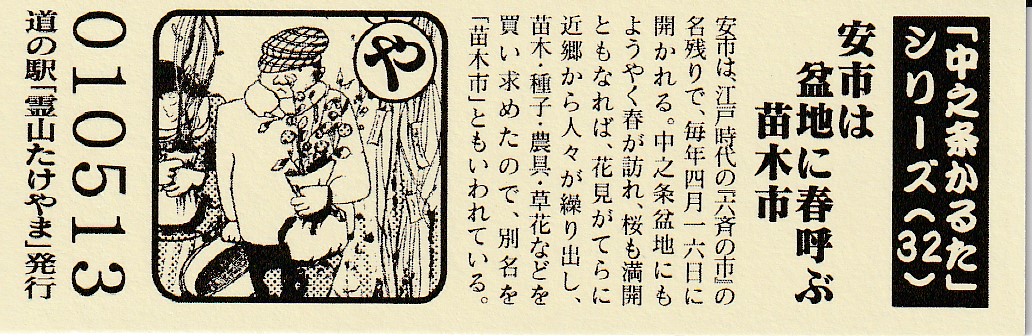 「中之条かるた」
シリーズ(32)
安市は
盆地に春呼ぶ
苗木市
安市は、江戸時代の『六斉の市』の
名残りで、毎年四月一六日に
開かれる。中之条盆地にも
ようやく春が訪れ、桜も満開
ともなれば、花見がてらに
近郷から人々が繰り出し、
苗木・種子・農具・草花などを
買い求めたので、別名を
「苗木市」ともいわれている。
や
010513
道の駅「霊山たけやま」発行